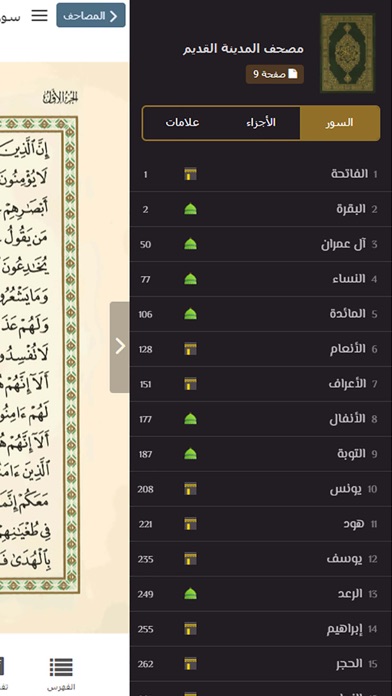 المصاحف
سور
مصحف المدينة القديم
صفحة 9
السور
الأجزاء
علامات
1 الفاتحة 1
2 البقرة 2
3 آل عمران 50
4 النساء 77
5 المائدة 106
6 الأنعام 128
7 الأعراف 151
8 الأنفال 177
9 التوبة 187
10 يونس 208
11 هود 221
12 يوسف 235
13 الرعد 249
14 إبراهيم 255
15 الحجر 262
الجزء الأول
إِنَّ ٱلَّذِينَ
لَا يُؤْمِنُونَ
أَبْصَٰرِهِمْ
مَن يَقُولُ
يُخَٰدِعُونَ
وَمَا يَشْعُرُو
وَلَهُمْ عَذَ
لَا تُفْسِدُو
أَلَآ إِنَّهُمْ هُ
لَهُمْ ءَامِنُو
أَلَآ إِنَّهُمْ هُ
ٱلَّذِينَ ءَامَ
مَعَكُمْ إِنَّمَا
فِى طُغْيَٰنِهِمْ
بِٱلْهُدَىٰ فَ
الفهرس
تف